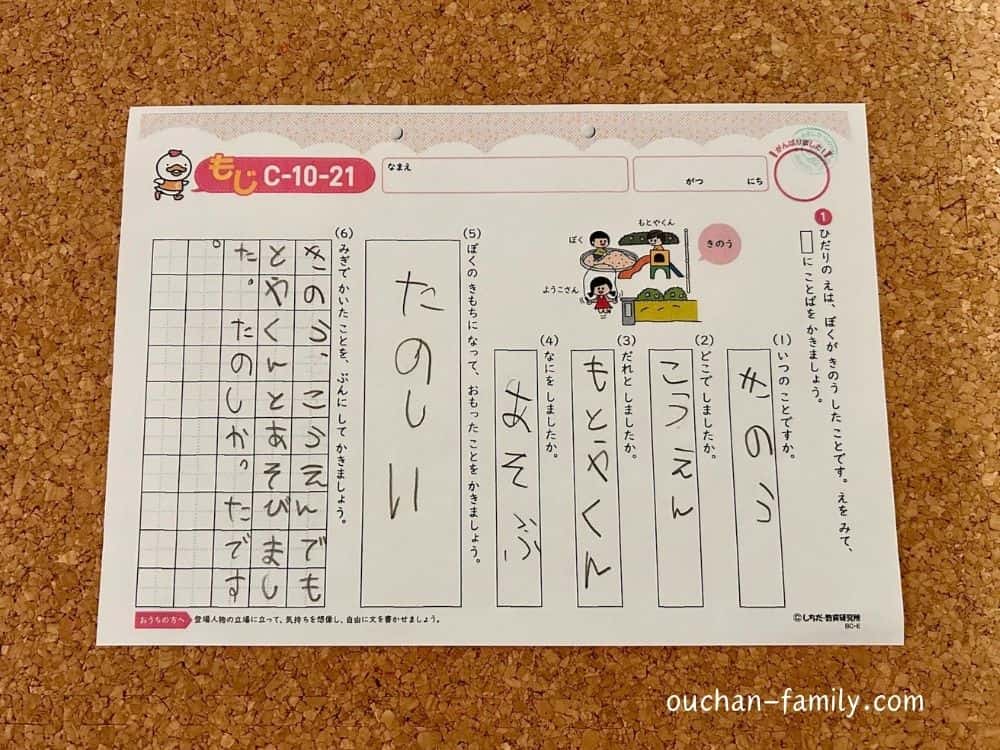 もじ C-10-21
なまえ
がつ にち
がんばりました！
1
ひだりの えは、ぼくが きのう した ことです。えを みて、
□に ことばを かきましょう。
きのう
もとやくん
ぼく
ようこさん
(1) いつの ことですか。
きのう
(2) どこで しましたか。
こうえん
(3) だれと しましたか。
もとやくん
(4) なにを しましたか。
あそぶ
(5) ぼくの きもちに なって、おもった ことを かきましょう。
たのしい
(6) みぎで かいた ことを、ぶんに して かきましょう。
きのう、こうえんでも
とやくんとあそびまし
た。たのしかったです
。
おうちの方へ 登場人物の立場に立って、気持ちを想像し、自由に文を書かせましょう。
©しちだ・教育研究所
BC-E
ouchan-family.com